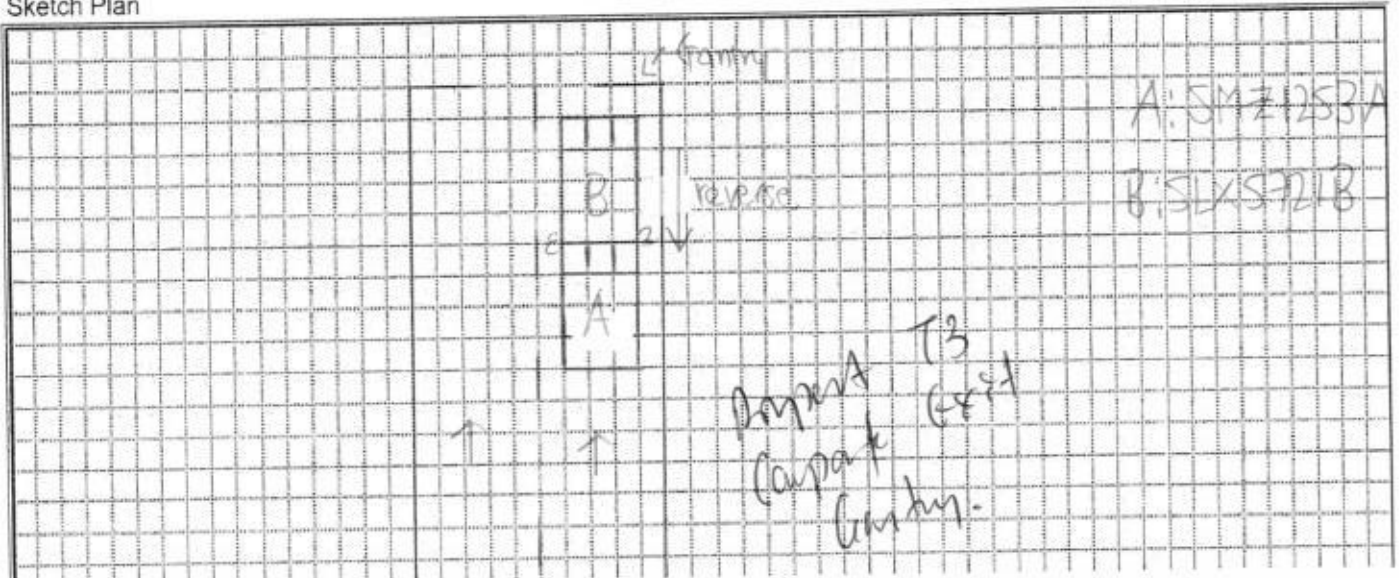 Sketch Plan
Gantry
A: SMZ1253A
B: SLX5721B
B
reverse
2
A
Airport T3
Carpark Exit
Gantry.